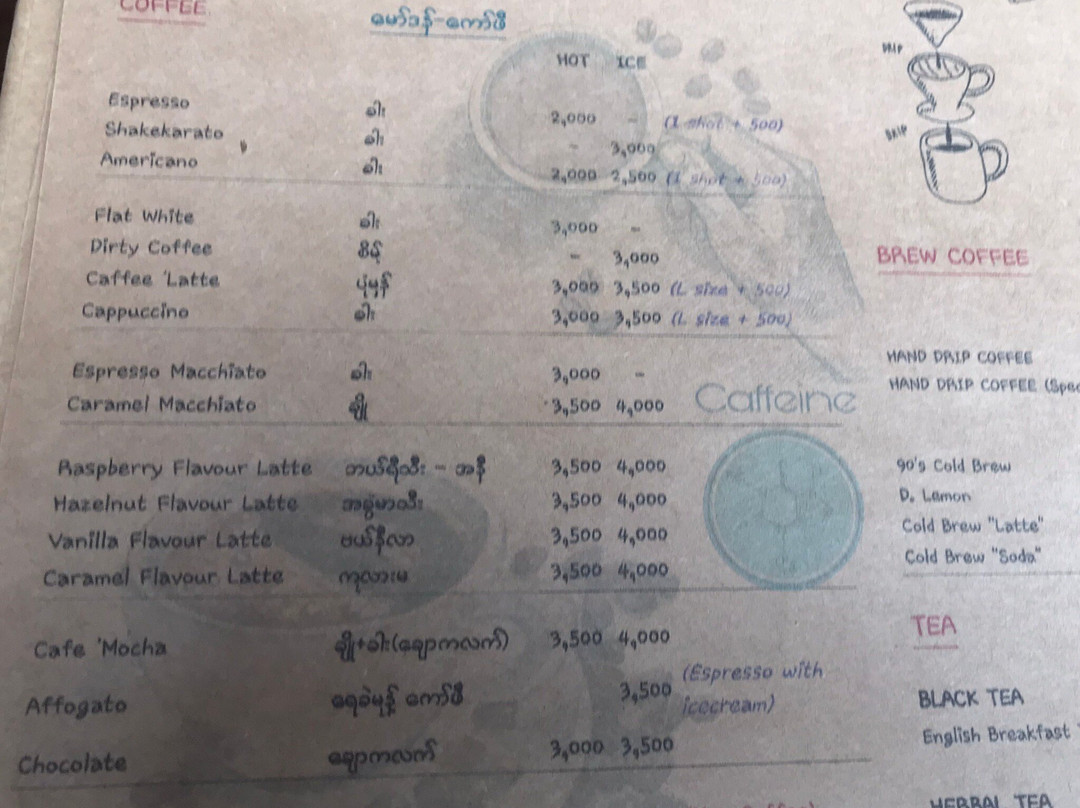 COFFEE
မော်ဒန်-ကော်ဖီ
HOT ICE
Espresso ခါး 2,000 - (1 shot + 500)
Shakekarato ခါး - 3,000
Americano ခါး 2,000 2,500 (1 shot + 500)
Flat White ခါး 3,000 -
Dirty Coffee စိမ့် - 3,000
Caffee 'Latte ပုံမှန် 3,000 3,500 (L size + 500)
Cappuccino ခါး 3,000 3,500 (L size + 500)
Espresso Macchiato ခါး 3,000 -
Caramel Macchiato ချို 3,500 4,000
Caffeine
Raspberry Flavour Latte ဘယ်ရီသီး - အနီ 3,500 4,000
Hazelnut Flavour Latte အခွံမာသီး 3,500 4,000
Vanilla Flavour Latte ဗယ်နီလာ 3,500 4,000
Caramel Flavour Latte ကုလားမ 3,500 4,000
Cafe 'Mocha ချို+ခါး(ချောကလက်) 3,500 4,000
Affogato ရေခဲမုန့် ကော်ဖီ 3,500 (Espresso with
icecream)
Chocolate ချောကလက် 3,000 3,500
DRIP
DRIP
BREW COFFEE
HAND DRIP COFFEE
HAND DRIP COFFEE (Spec
90's Cold Brew
D. Lemon
Cold Brew "Latte"
Cold Brew "Soda"
TEA
BLACK TEA
English Breakfast
HERBAL TEA